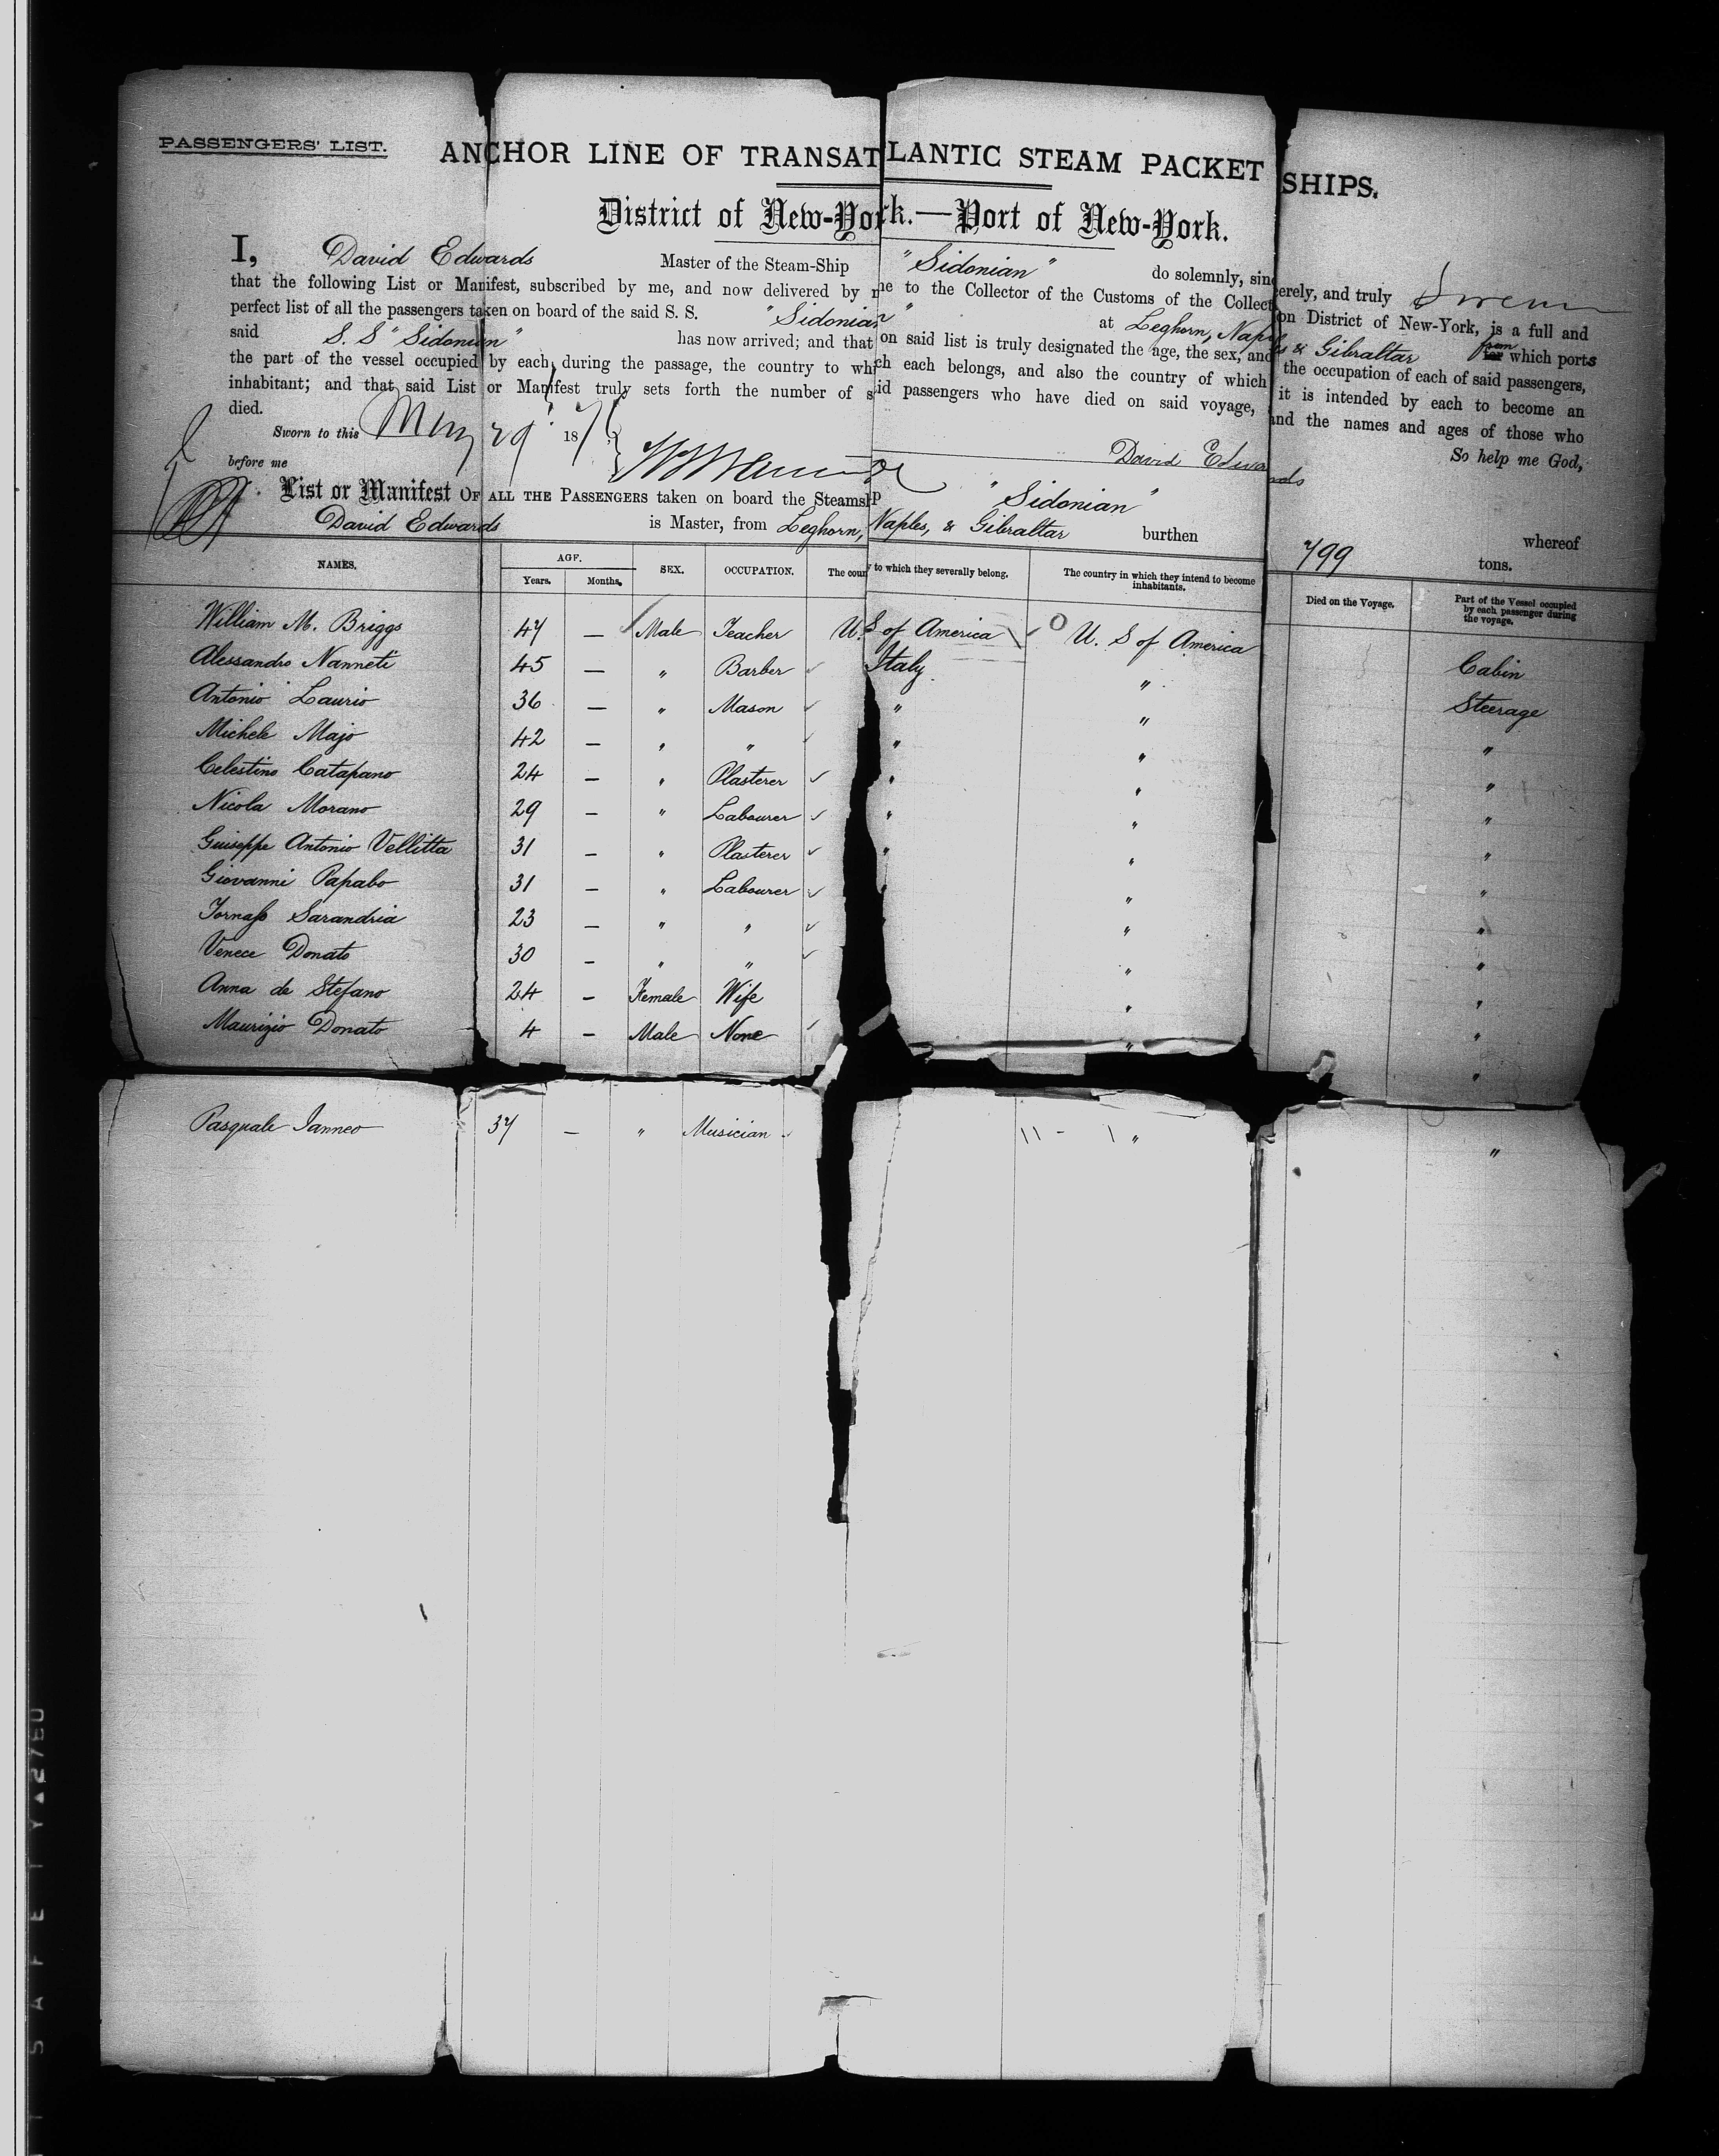 PASSENGERS' LIST.
ANCHOR LINE OF TRANSATLANTIC STEAM PACKET SHIPS.
District of New-York.—Port of New-York.
I, David Edwards Master of the Steam-Ship "Sidonian" do solemnly, sincerely, and truly Swear
that the following List or Manifest, subscribed by me, and now delivered by me to the Collector of the Customs of the Collection District of New-York, is a full and
perfect list of all the passengers taken on board of the said S. S. "Sidonian" at Leghorn, Naples & Gibraltar from which ports
said S. S "Sidonian" has now arrived; and that on said list is truly designated the age, the sex, and the occupation of each of said passengers,
the part of the vessel occupied by each during the passage, the country to which each belongs, and also the country of which it is intended by each to become an
inhabitant; and that said List or Manifest truly sets forth the number of said passengers who have died on said voyage, and the names and ages of those who
died. So help me God,
Sworn to this May 29 187
before me David Edwards
List or Manifest OF ALL THE PASSENGERS taken on board the Steamship "Sidonian" whereof
David Edwards is Master, from Leghorn, Naples, & Gibraltar burthen 799 tons.
NAMES. AGE. Years. Months. SEX. OCCUPATION. The country to which they severally belong. The country in which they intend to become inhabitants. Died on the Voyage. Part of the Vessel occupied by each passenger during the voyage.
William M. Briggs 47 — Male Teacher U. S of America U. S of America Cabin
Alessandro Nanneti 45 — " Barber Italy " Steerage
Antonio Laurio 36 — " Mason " " "
Michele Majo 42 — " " " " "
Celestino Catapano 24 — " Plasterer " " "
Nicola Morano 29 — " Labourer " " "
Guiseppe Antonio Vellitta 31 — " Plasterer " " "
Giovanni Papabo 31 — " Labourer " "
Tornaso Sarandria 23 — " " " "
Venece Donato 30 — " " " "
Anna de Stefano 24 — Female Wife " "
Maurizio Donato 4 — Male None " "
Pasquale Ianneo 37 — " Musician " "
SAFETY